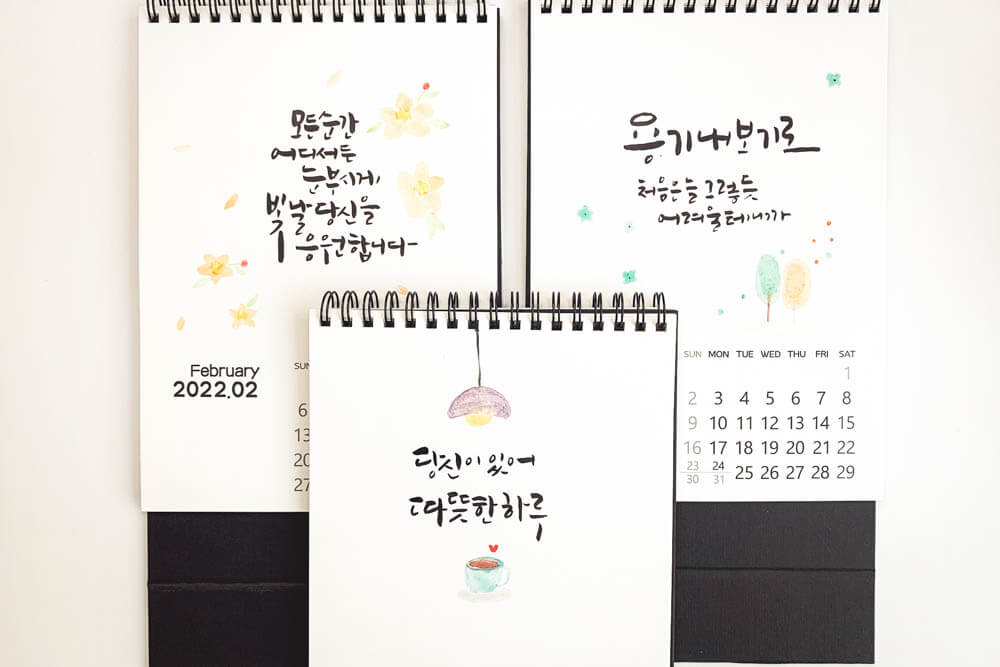 모든순간
어디서든
눈부시게
빛날 당신을
응원합니다
February
2022.02
SUN
6
13
20
27
용기내보기로
처음은 늘 그렇듯
어려울테니까
SUN MON TUE WED THU FRI SAT
1
2 3 4 5 6 7 8
9 10 11 12 13 14 15
16 17 18 19 20 21 22
23 24 25 26 27 28 29
30 31
당신이 있어
따뜻한 하루